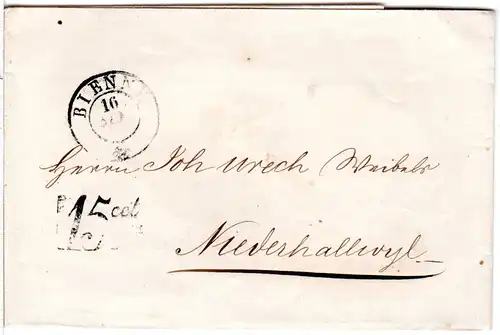 BIENNE
16
Herrn Joh Urech Weibels
15
Niederhallwyl